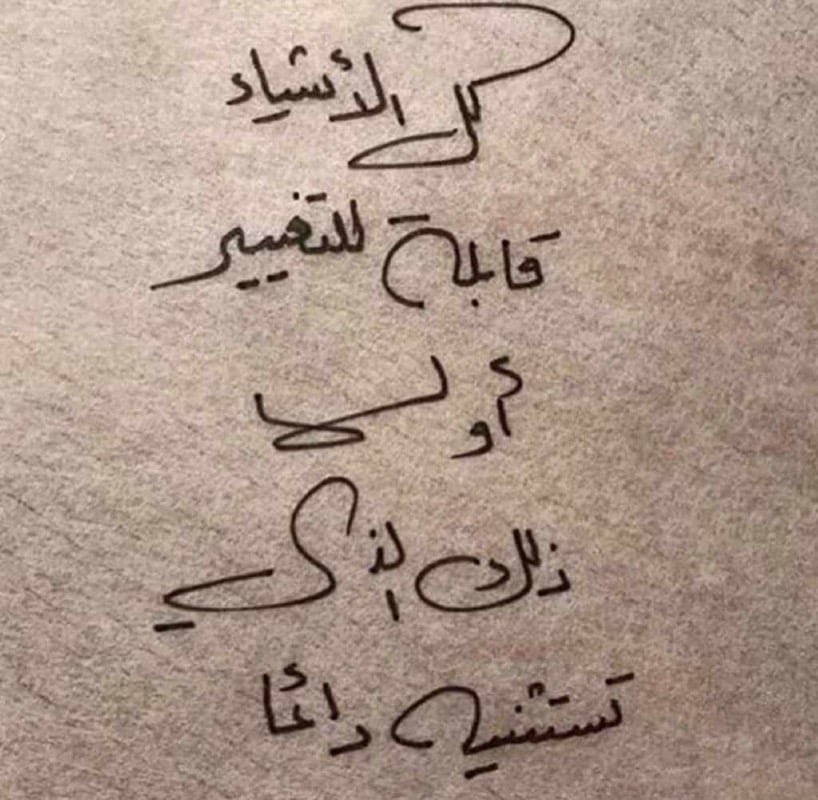 كل الأشياء
قابلة للتغيير
أولها
ذلك الذي
تستثنيه دائما